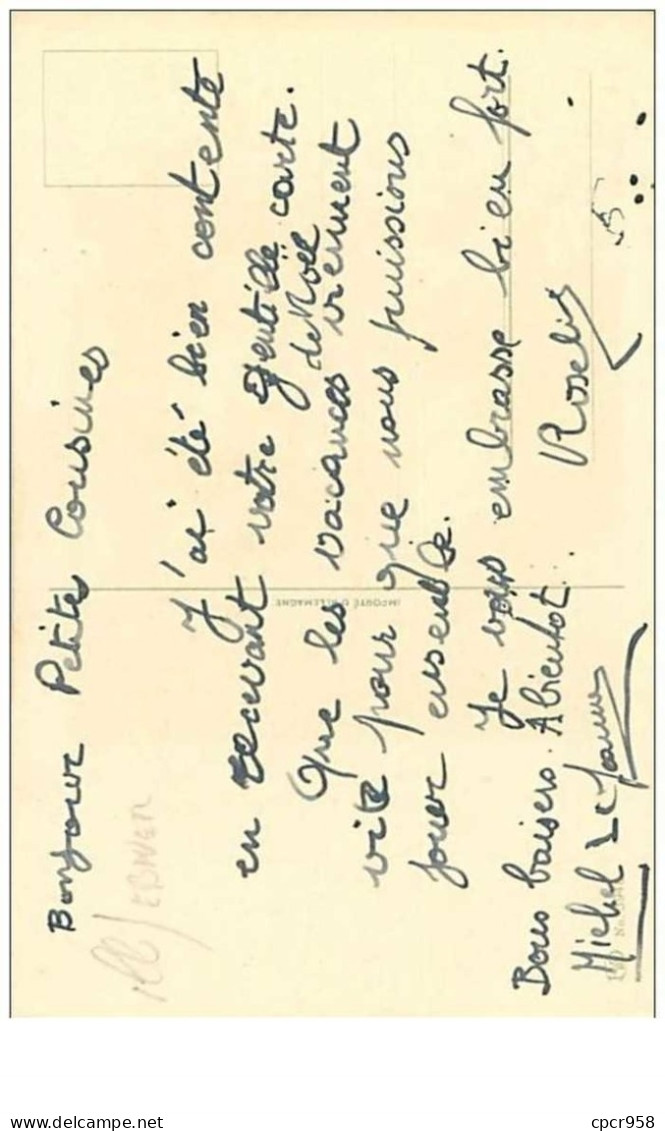 Bonjour Petites Cousines
J'ai été bien contente
en recevant votre gentille carte.
Que les vacances de Noël viennent
vite pour que nous puissions
jouer ensemble.
Je vous embrasse bien fort.
Bons baisers. A bientot.
Roselin
Michel Le Jeanne
IMPORTÉ D'ALLEMAGNE
cpcr958